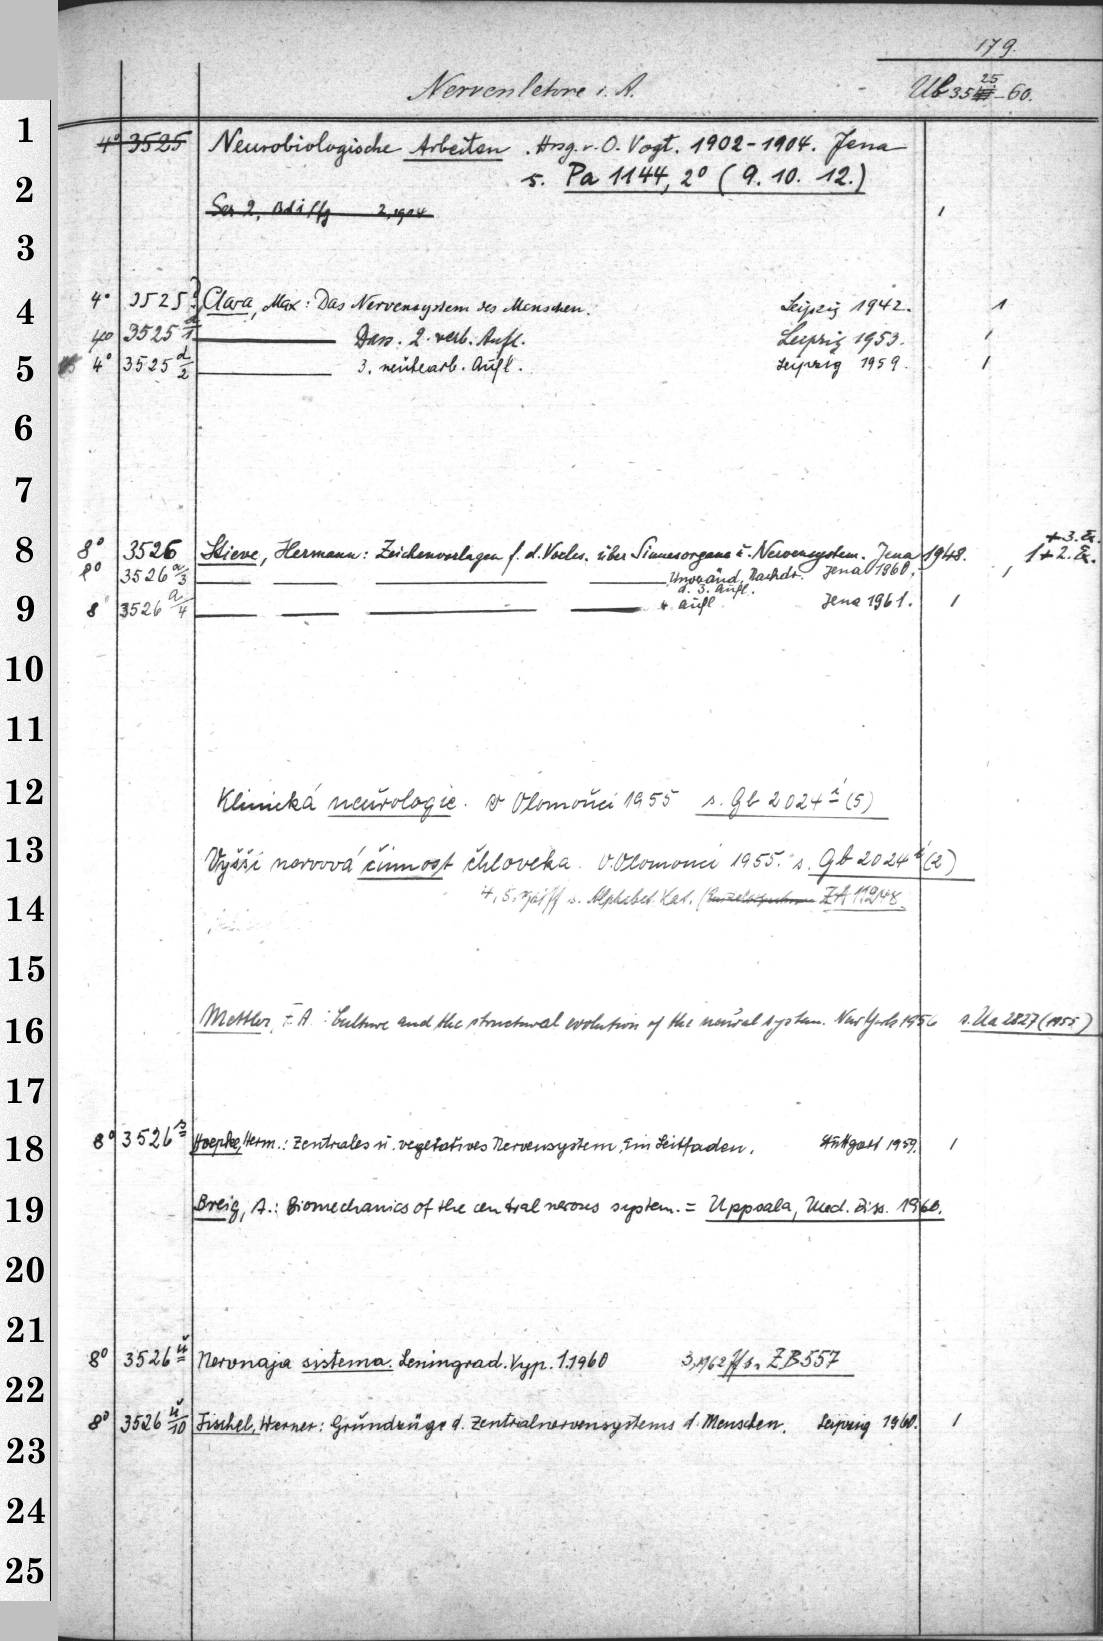 179.
Nervenlehre i. A.
Ub 3525-60.
1
4° 3525 Neurobiologische Arbeiten. Hrsg. v. O. Vogt. 1902-1904. Jena
2
s. Pa 1144, 2° (9. 10. 12.)
Ser 2, Bd 1 ffg 2,1904 1
3
4
4° 3525 Clara, Max: Das Nervensystem des Menschen. Leipzig 1942. 1
4° 3525 d/1 Dass. 2. verb. Aufl. Leipzig 1953. 1
5
4° 3525 d/2 3. neubearb. Aufl. Leipzig 1959. 1
6
7
8
8° 3526 Stieve, Hermann: Zeichenvorlagen f. d. Vorles. über Sinnesorgane u. Nervensystem. Jena 1948. 1+2.E. +3.E.
8° 3526 a/3 Unveränd. Nachdr. d. 3. Aufl. Jena 1960. 1
9
8 3526 a/4 4. Aufl Jena 1961. 1
10
11
12
Klinická neurologie. v Olomouci 1955 s. Gb 2024 i (5)
13
Vyšší nervová činnost človeka. V Olomouci 1955. s. Gb 2024 i (2)
14
4, 5, s. Alphabet. Kat. ZA 11248
15
16
Mettler, F. A.: Culture and the structural evolution of the neural system. New York 1956 s. Ua 2827 (1955)
17
18
8° 3526 s Hoepke, Herm.: Zentrales u. vegetatives Nervensystem, Ein Leitfaden. Stuttgart 1959. 1
19
Breig, A.: Biomechanics of the central nervous system. = Uppsala, Med. Diss. 1960.
20
21
22
8° 3526 u Nervnaja sistema. Leningrad. Vyp. 1.1960 3,1962 ff s. ZB 557
23
8° 3526 u/10 Fischel, Werner: Grundzüge d. Zentralnervensystems d. Menschen. Leipzig 1960. 1
24
25